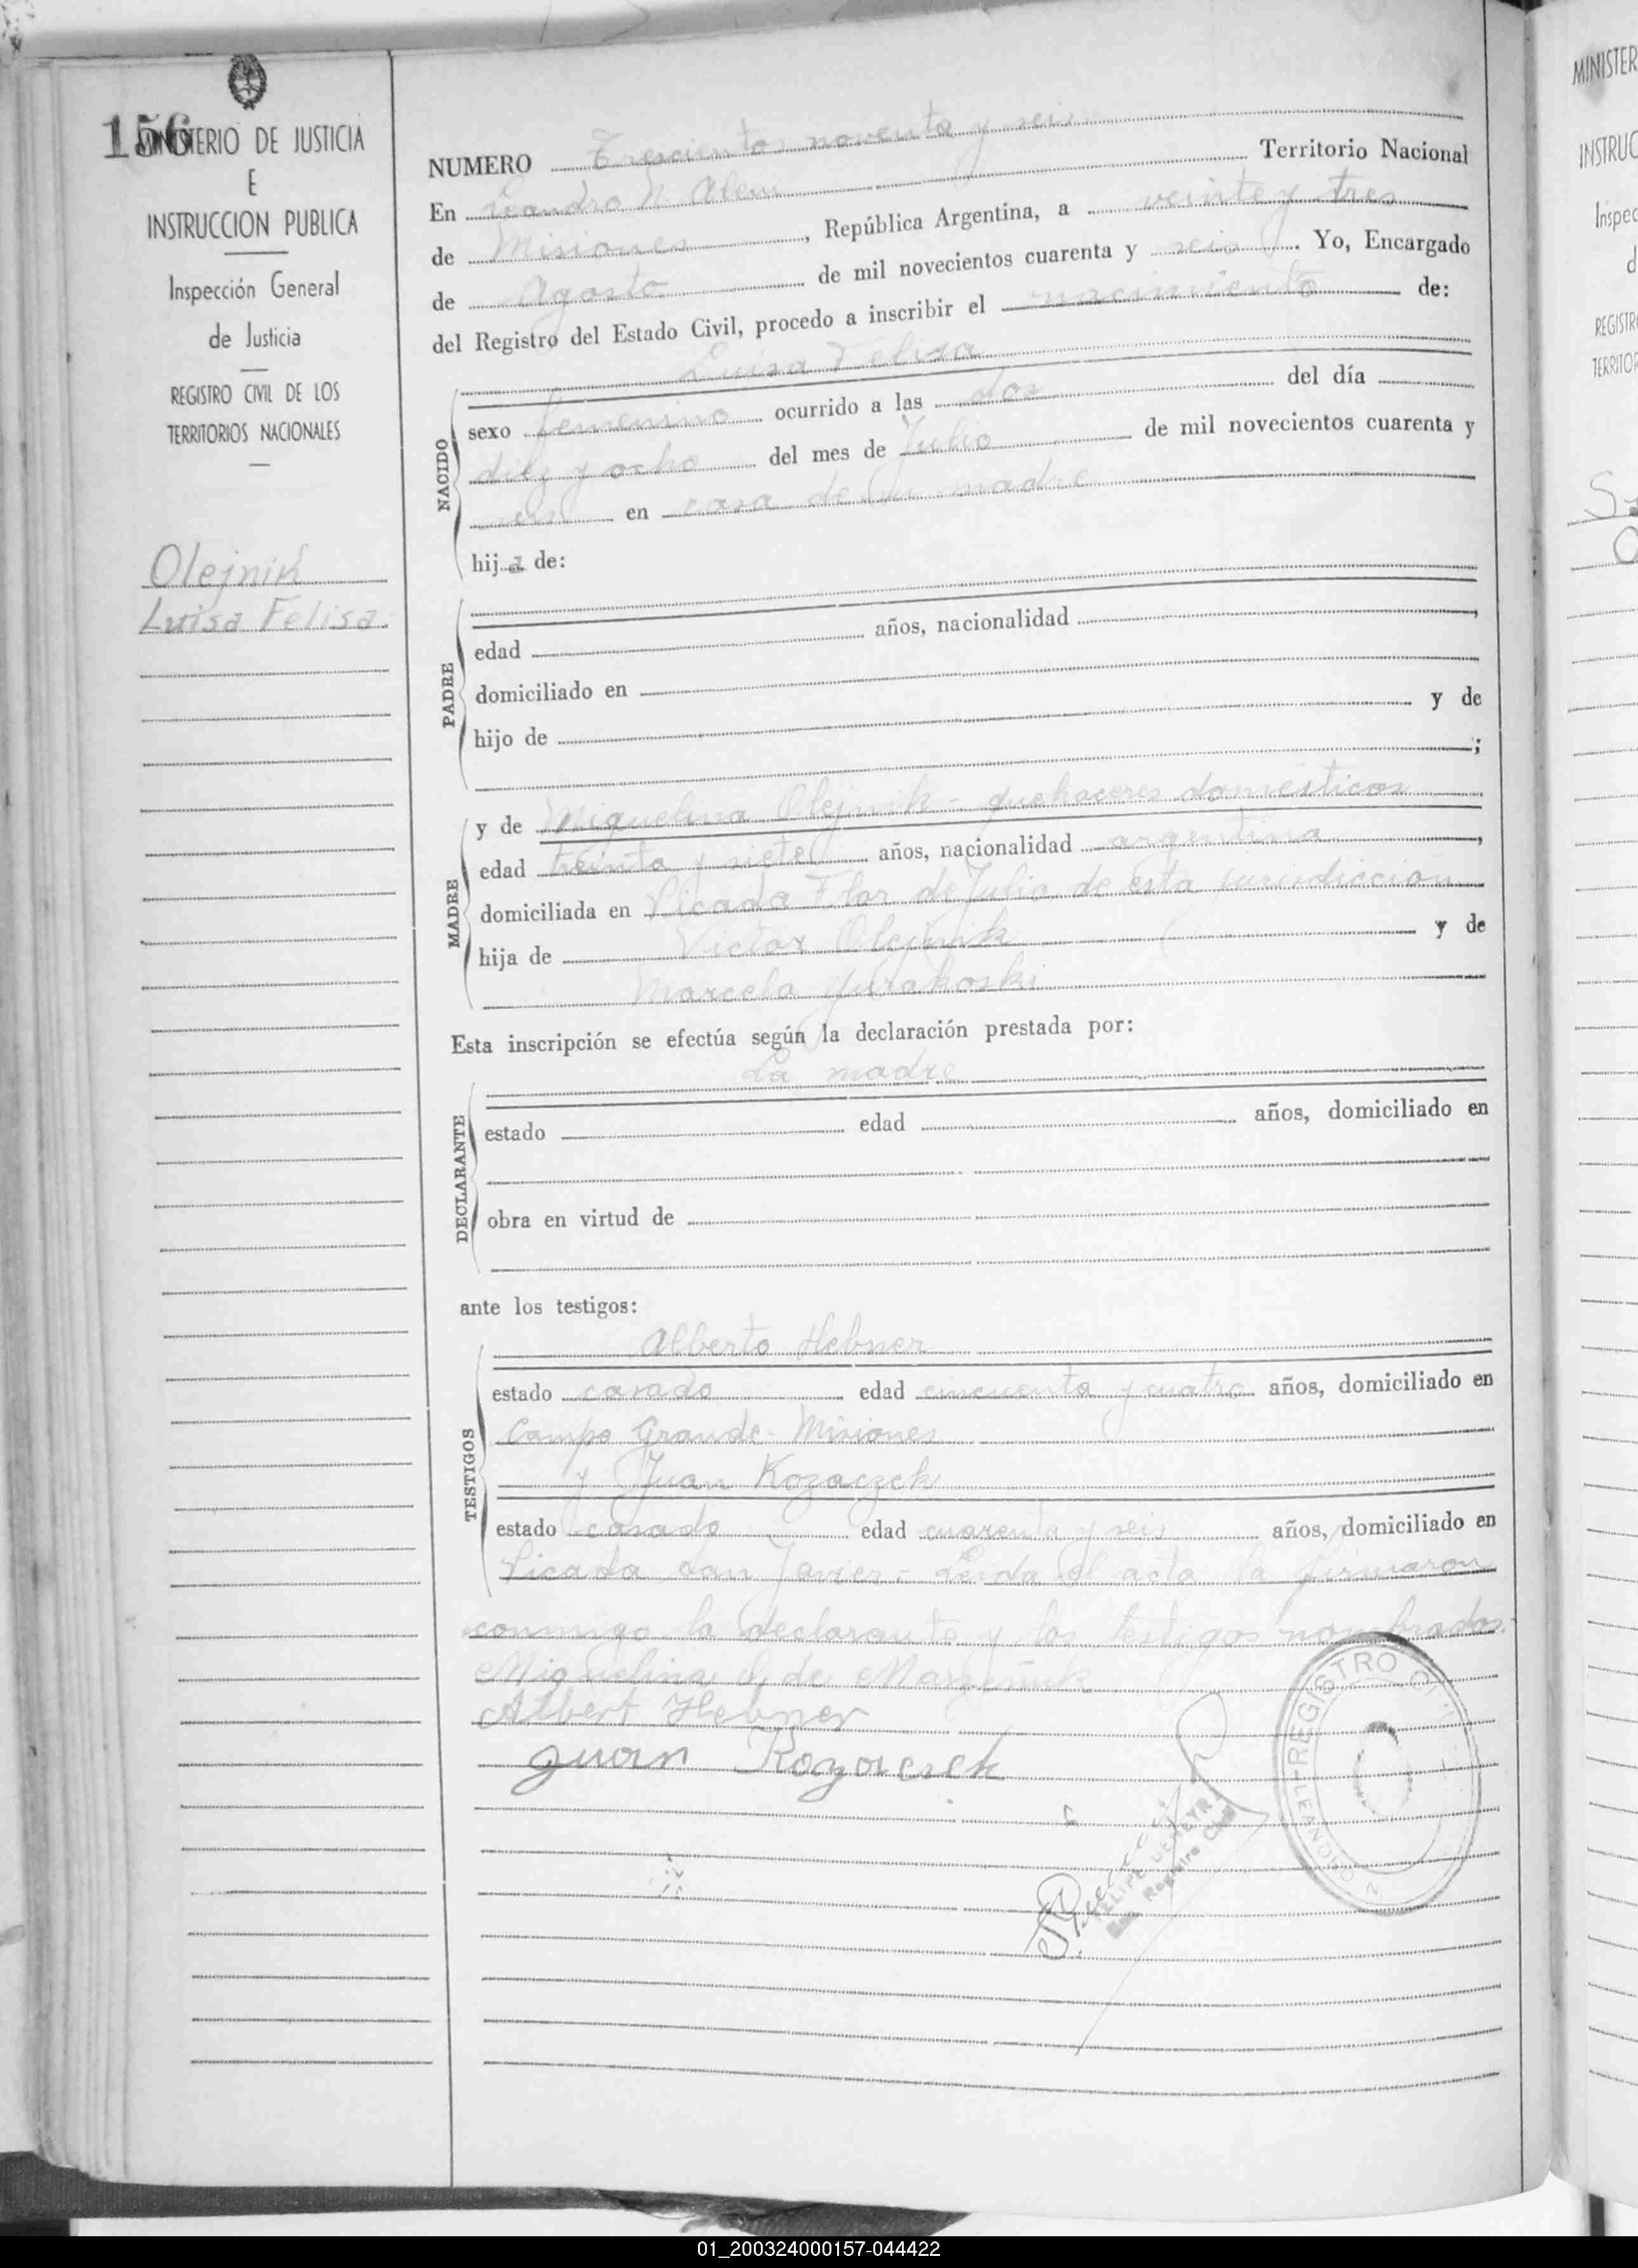 156
MINISTERIO DE JUSTICIA
E
INSTRUCCION PUBLICA
Inspección General
de Justicia
REGISTRO CIVIL DE LOS
TERRITORIOS NACIONALES
Olejnik
Luisa Felisa.
NUMERO Trescientos noventa y seis
En Leandro N. Alem Territorio Nacional
de Misiones, República Argentina, a veinte y tres
de Agosto de mil novecientos cuarenta y seis. Yo, Encargado
del Registro del Estado Civil, procedo a inscribir el nacimiento de:
NACIDO
Luisa Felisa
sexo femenino ocurrido a las dos del día
diez y ocho del mes de Julio de mil novecientos cuarenta y
seis en casa de su madre
hija de:
PADRE
edad años, nacionalidad ,
domiciliado en
hijo de y de
;
MADRE
y de Miguelina Olejnik - quehaceres domesticos
edad treinta y siete años, nacionalidad argentina,
domiciliada en Picada Flor de Julio de esta jurisdiccion
hija de Victor Olejnik y de
Marcela
Esta inscripción se efectúa según la declaración prestada por:
DECLARANTE
La madre
estado edad años, domiciliado en
obra en virtud de
ante los testigos:
TESTIGOS
Alberto Hebner
estado casado edad cincuenta y cuatro años, domiciliado en
Campo Grande - Misiones
y Juan Kozaczek
estado casado edad cuarenta y seis años, domiciliado en
Picada San Javier - Leida el acta la firmaron
conmigo la declarante y los testigos nombrados.
Miguelina O. de
Albert Hebner
Juan Kozaczek
FELIPE
REGISTRO CIVIL
LEANDRO N
MINISTER
INSTRUC
Inspec
d
REGISTR
TERRITOR
01_200324000157-044422